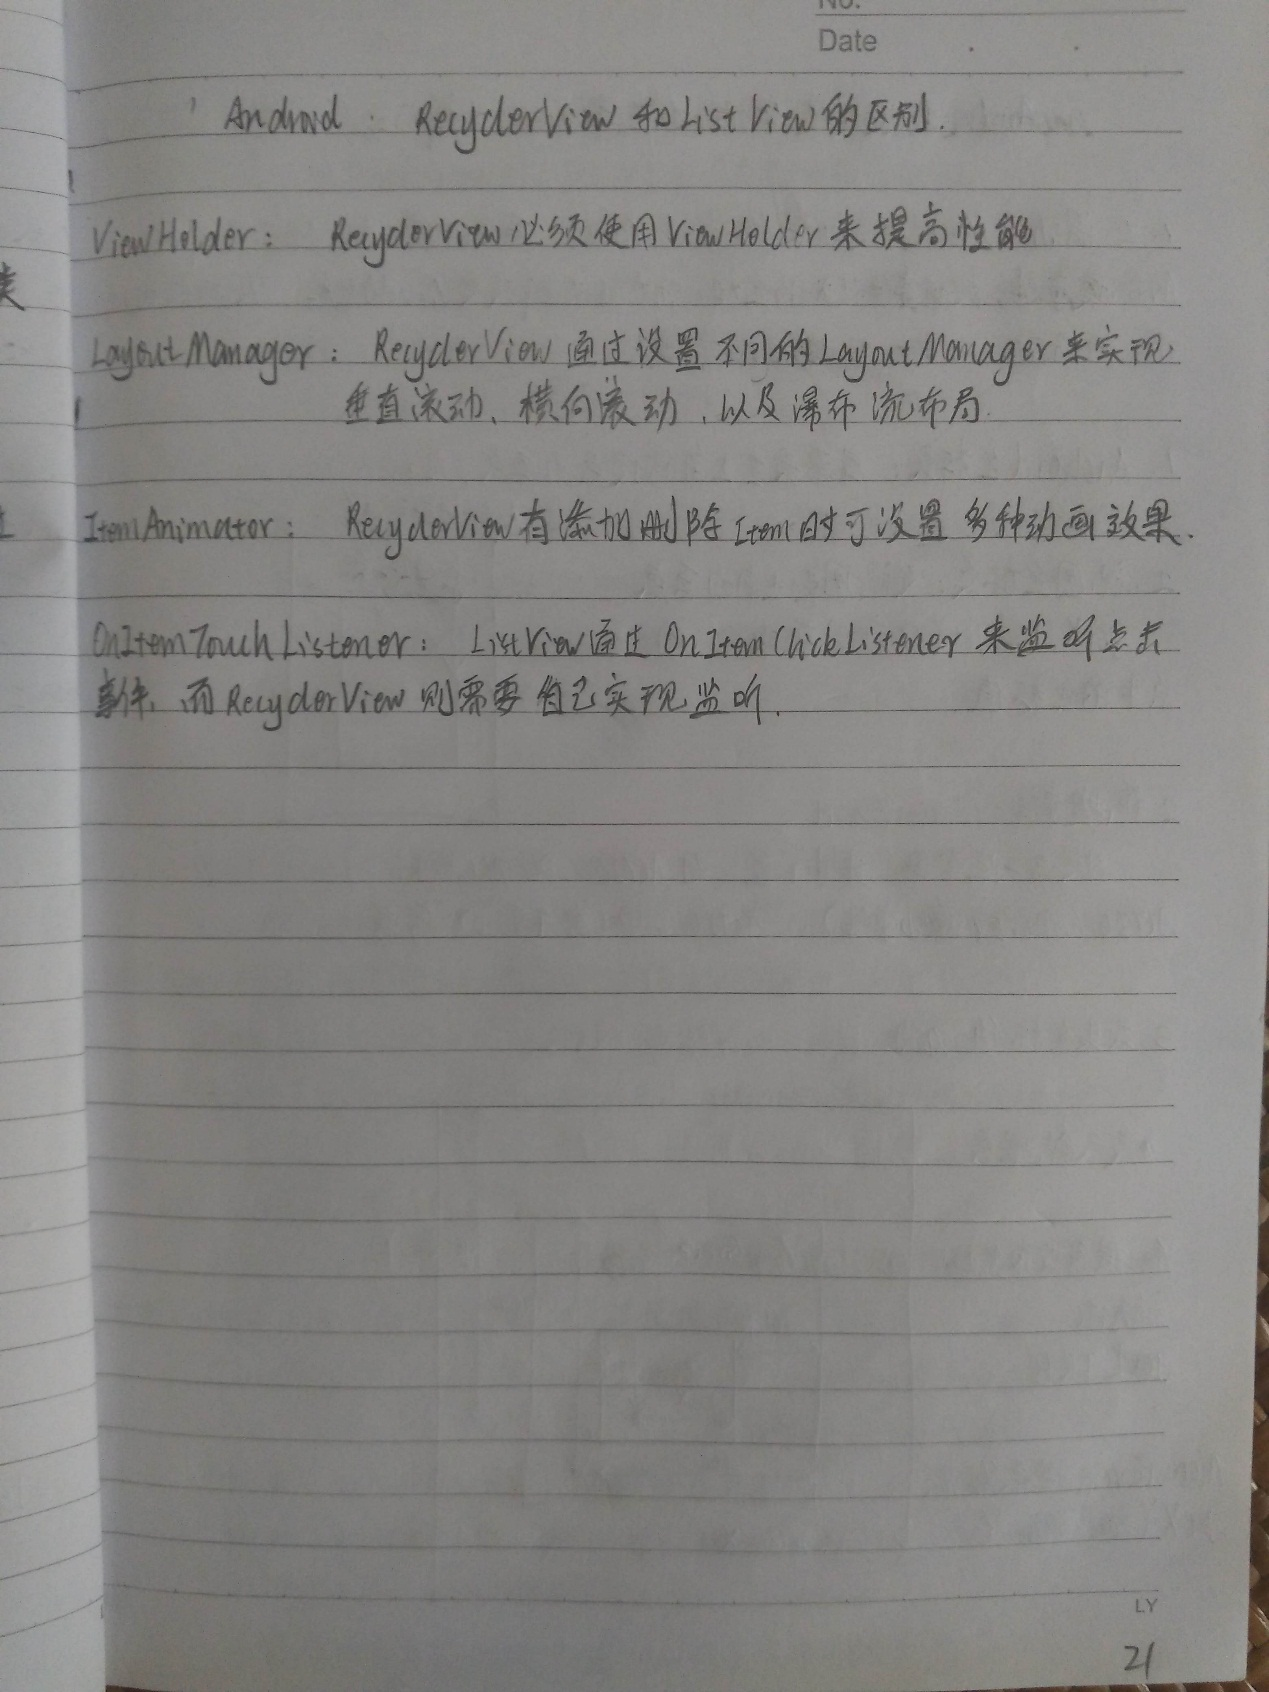 No.
Date
Android RecyclerView 和 ListView的区别.
ViewHolder: RecyclerView必须使用ViewHolder来提高性能
类
LayoutManager: RecyclerView 通过设置不同的LayoutManager来实现
垂直滚动、横向滚动,以及瀑布流布局.
ItemAnimator: RecyclerView有添加删除Item时可设置多种动画效果.
OnItemTouchListener: ListView通过OnItemClickListener来监听点击
事件,而RecyclerView则需要自己实现监听.
LY
21